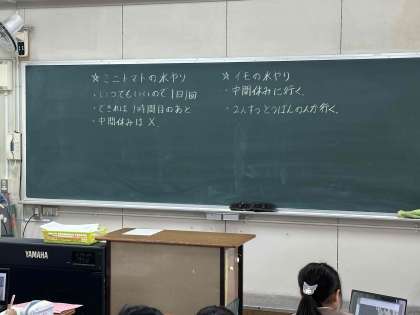 ☆ミニトマトの水やり
・いつでもいいので1日1回
・できれば 1時間目のあと
・中間休みは X.
☆イモの水やり
・中間休みに行く.
・2人ずつとうばんの人が行く.
YAMAHA